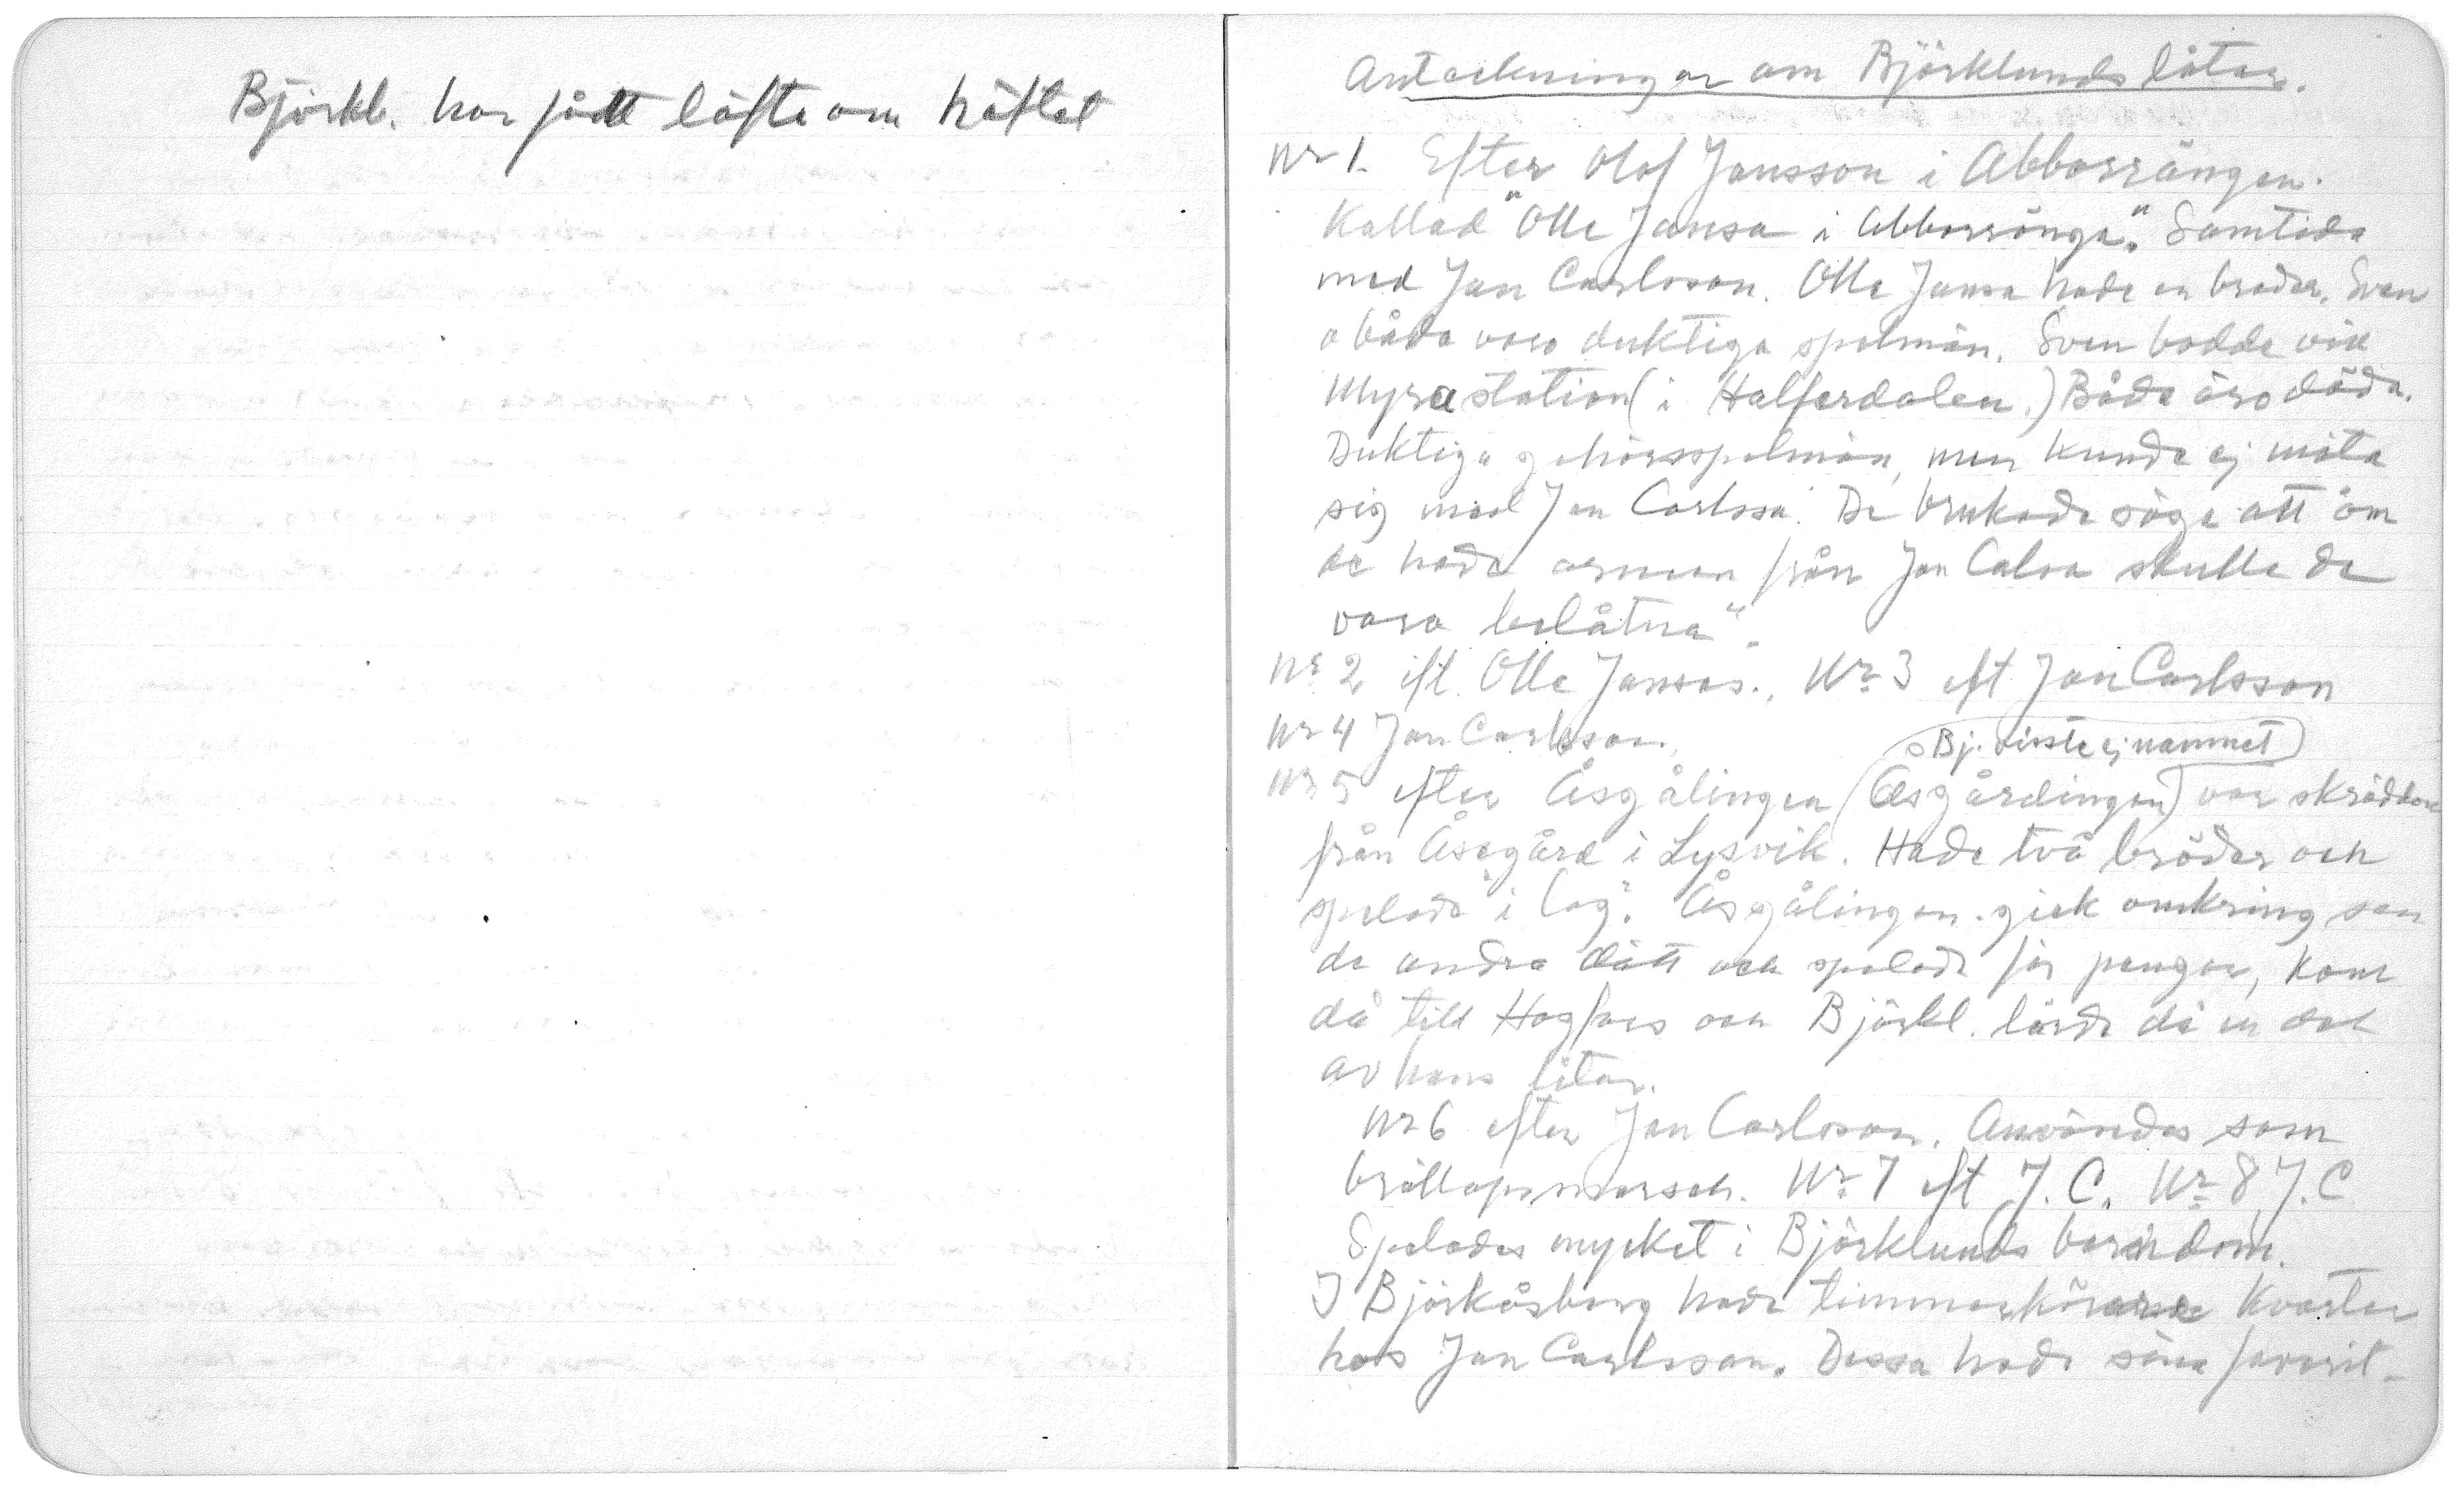 Björkl. har fått löfte om häftet
Anteckningar om Björklunds låtar.
Nr 1. Efter Olof Jansson i Abborrängen.
Kallad "Olle Jansa i Abborränga". Samtida
med Jan Carlsson. Olle Jansa hade en broder, Sven
o båda voro duktiga spelmän. Sven bodde vid
Myra station (i Halferdalen.) Båda äro döda.
Duktiga gehörsspelmän, men kunde ej mäta
sig med Jan Carlssa. De brukade säga att "om
de hade armen från Jan Calsa skulle de
vara belåtna".
Nr 2 eft. Olle Jansas., Nr 3 eft Jan Carlsson
Nr 4 Jan Carlsson.
Bj. visste ej namnet
Nr 5 efter Åsgålingen (Åsgårdingen) var skräddare
från Åsegård i Lysvik. Hade två bröder och
spelade "i lag". Åsgålingen gick omkring som
de andra lått och spelade för pengar, kom
då till Hagfors och Björkl. lärde då en del
av hans låtar.
Nr 6 efter Jan Carlsson. Användes som
bröllopsmarsch. Nr 7 eft J. C. Nr 8 J. C
Spelades mycket i Björklunds barndom.
I Björkåsberg hade timmerkörarne kvarter
hos Jan Carlsson. Dessa hade sina favorit-